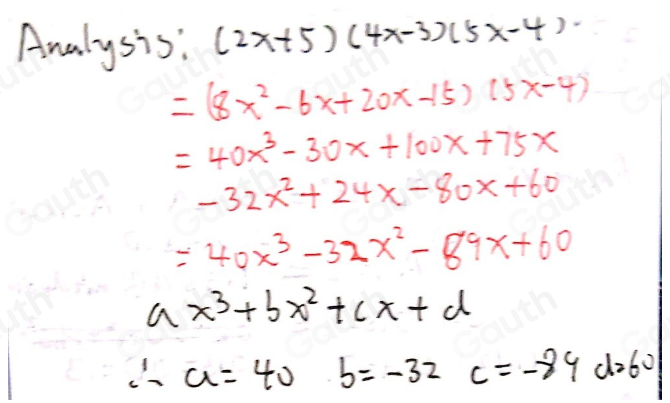 Analysis: (2x+5)(4x-3)(5x-4).
= (8x²-6x+20x-15)(5x-4)
= 40x³-30x+100x+75x
-32x²+24x-80x+60
= 40x³-32x²-89x+60
ax³+bx²+cx+d
∴ a=40 b=-32 c=-89 d=60